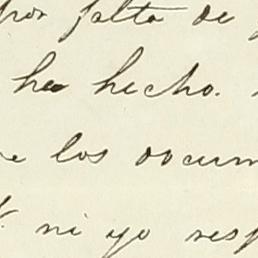 por falta de
ha hecho.
los docum
ni yo resp